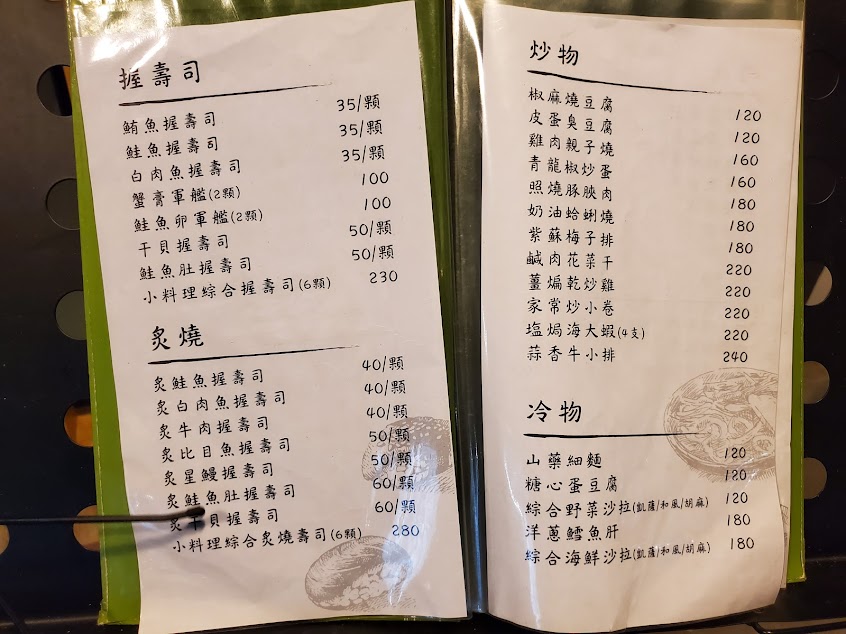 握壽司
鮪魚握壽司 35/顆
鮭魚握壽司 35/顆
白肉魚握壽司 35/顆
蟹膏軍艦(2顆) 100
鮭魚卵軍艦(2顆) 100
干貝握壽司 50/顆
鮭魚肚握壽司 50/顆
小料理綜合握壽司(6顆) 230
炙燒
炙鮭魚握壽司 40/顆
炙白肉魚握壽司 40/顆
炙牛肉握壽司 40/顆
炙比目魚握壽司 50/顆
炙星鰻握壽司 50/顆
炙鮭魚肚握壽司 60/顆
炙干貝握壽司 60/顆
小料理綜合炙燒壽司(6顆) 280
炒物
椒麻燒豆腐 120
皮蛋臭豆腐 120
雞肉親子燒 160
青龍椒炒蛋 160
照燒豚腴肉 180
奶油蛤蜊燒 180
紫蘇梅子排 180
鹹肉花菜干 220
薑煸乾炒雞 220
家常炒小卷 220
塩焗海大蝦(4支) 220
蒜香牛小排 240
冷物
山藥細麵 120
糖心蛋豆腐 120
綜合野菜沙拉(凱薩/和風/胡麻) 120
洋蔥鱈魚肝 180
綜合海鮮沙拉(凱薩/和風/胡麻) 180